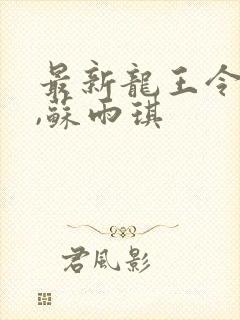 最新龍王令
,蘇雨琪
君風影